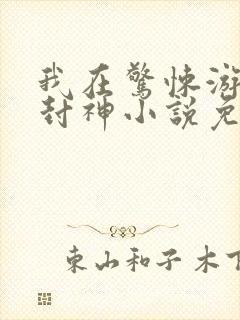 我在驚悚游
封神小說免
東山和子木下